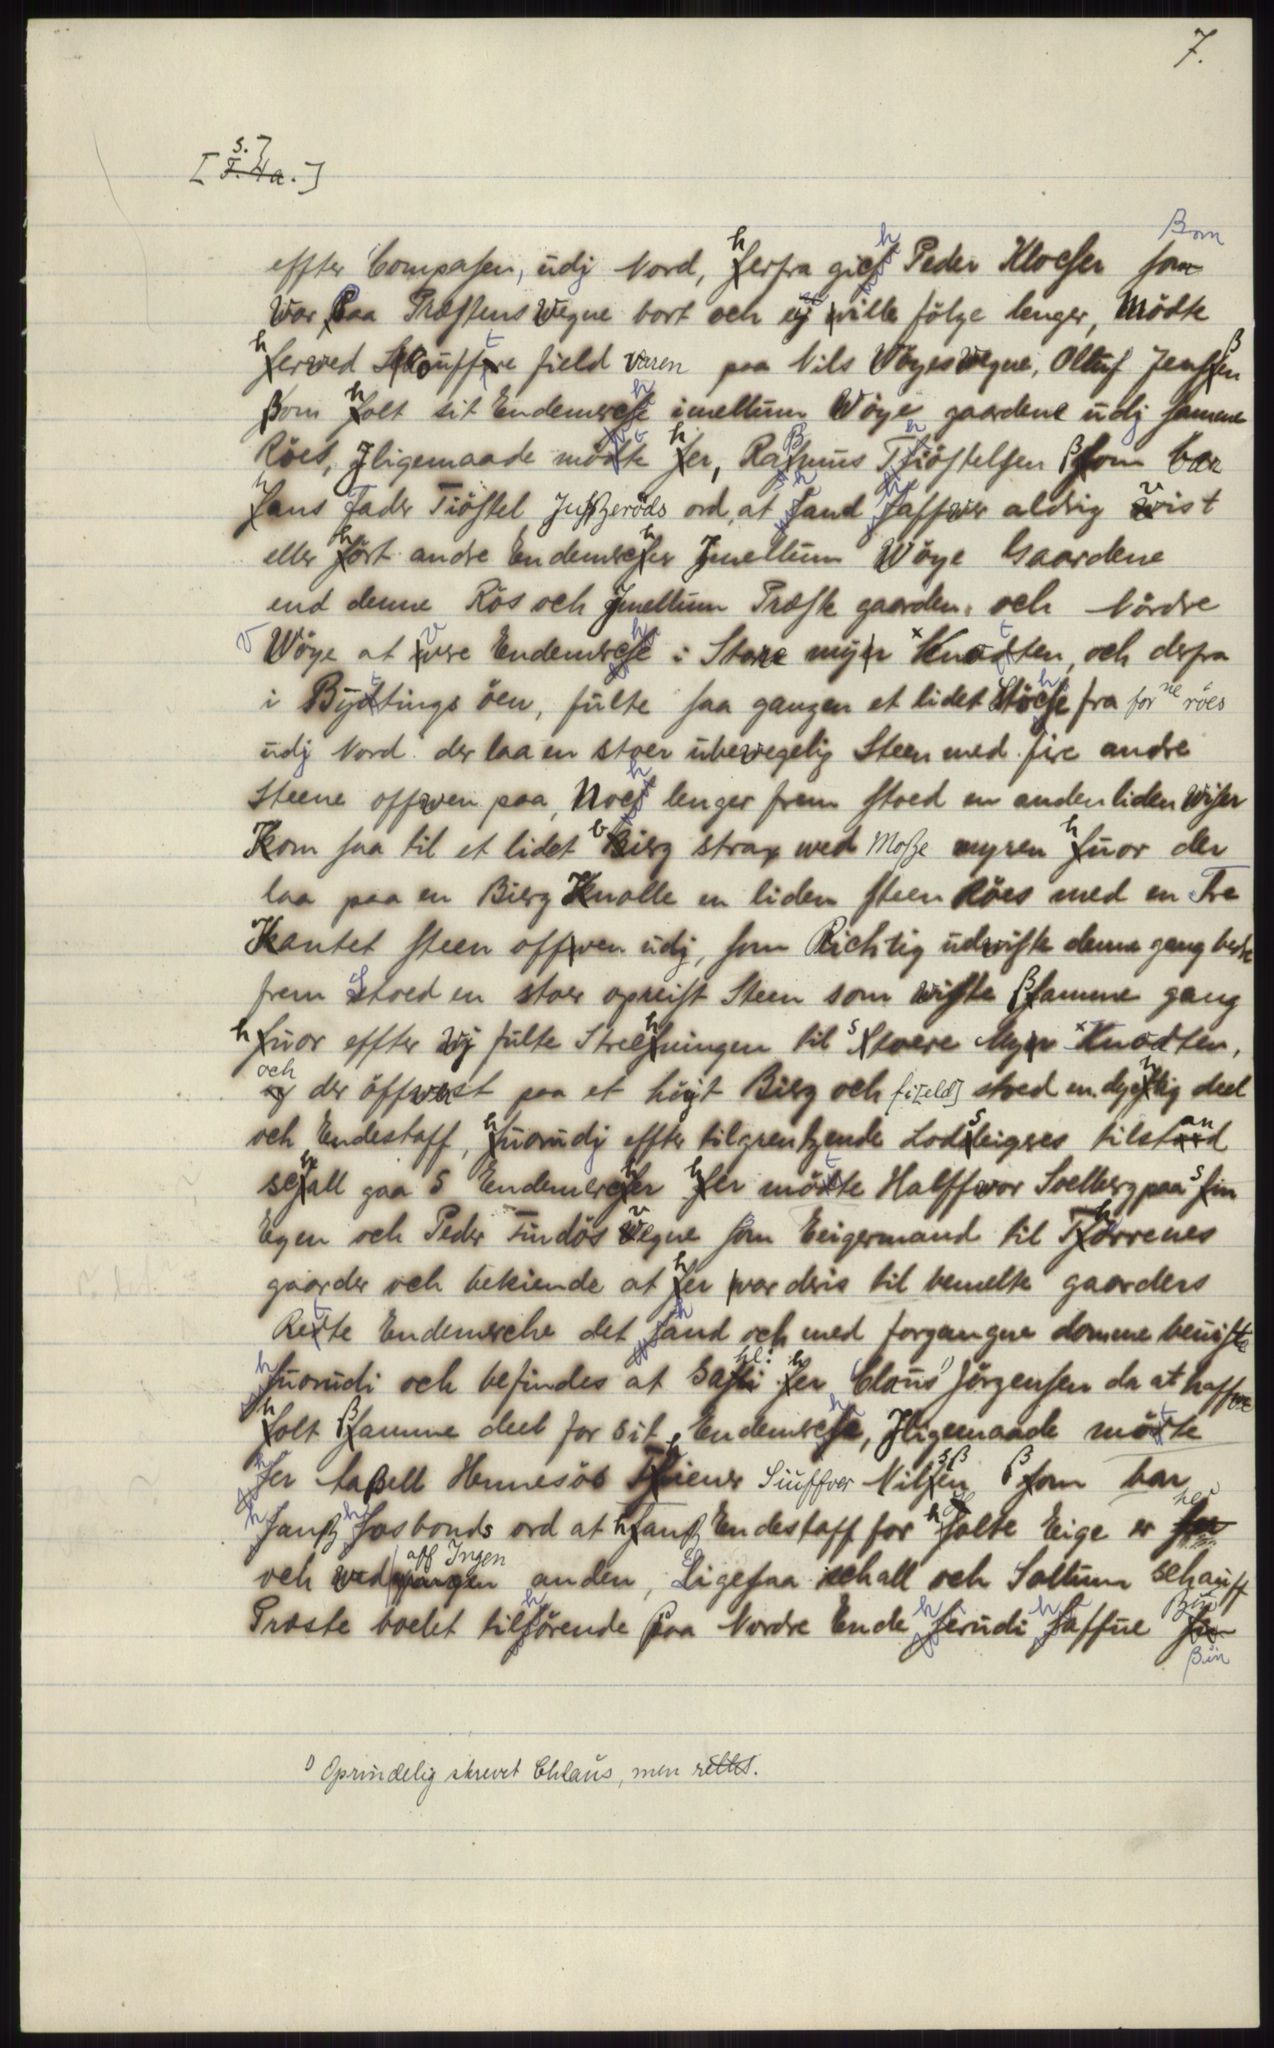 7.
[F. Ha.] s.]
effter Compasen, udj Nord, herfra gich Peder Klocher som ßom
War Paa Præstens Wegne bort och ej wille fölge lenger, Mödte
herved field varen paa Nils Wöyes wegne, Olluf Jenßen
ßom holt sit Endemerche imellum Wöye gaardene udj samme
Röes, Jligemaade mötte her, Raßmus Tiöstelsen ßom bar
hans Fader Tiöstel Jußeröds ord, at hand haffver aldrig vist
eller hört andre Endemercher Jmellum Wöye Gaardene
end denne Rös och Jmellum Præste gaarden, och Nördre
Wöye at vere Endemerche i Store myr Knatten, och derfra
i Byttings öen, fulte saa gangen et lidet Stöche fra forne röes
udj Nord der laa en stoer ubevegelig Steen med fire andre
Steene offven paa, Noch lenger frem stoed en anden liden Wiser
Kom saa til et lidet bierg strax wed Moße myren huor der
laa paa en Bierg Knolle en liden steen Röes med en Tre
Kantet steen offven udj, som Richtig udviste denne gang bedre
frem Stoed en stoer opreist Steen som wiste ßamme gang
huor effter Wj fulte Strechningen til Stoere Myr Knatten,
och der öffverst paa et höyt Bierg och fi[eld] stoed en dygtig deel
och Endestaff, huorudj effter tilgrentzende Lodseigeres tilstand
schall gaa 5 Endemercher her mötte Halffvor Soelberg paa sin
Egen och Peder Findös Vegne som Eigermand til Thorrenes
gaarder och bekiende at her var deris til bemelte gaarders
Rette Endemerche det hand och med forgangne domme beviste
huorudi och befindes at Sahl: her Claus 1) Jörgensen da at haffve
holt ßamme deel for sit Endemerche, Jligemaade mötte
her Caßell Hennesös Thiener Siuffver Nilßen ßom bar
hanß hosbonds ord at hanß Endestaff for holte Eige er her
och aff Jngen anden, Ligesaa schall och Soltum schauff
Præste boelet tilhörende Paa Nordre Ende herudi haffue ßin
1) Oprindelig skrevet Chlaus, men rettet.